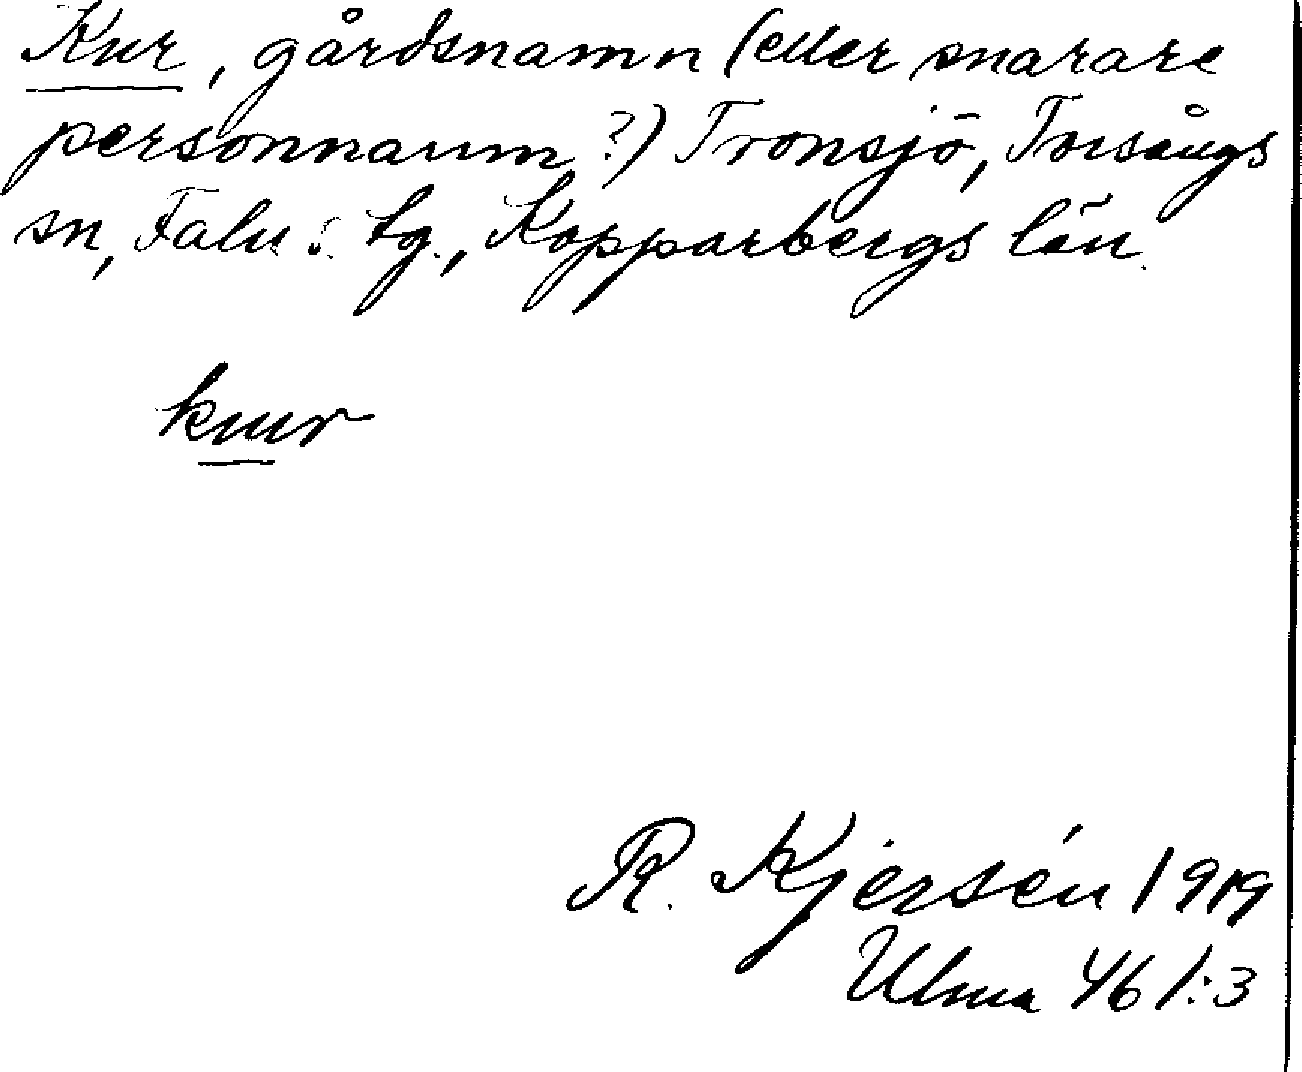 Knr, gårdsnamn (eller snarare
personnamn?) Tronsjö, Torsångs
sn, Falu s. tg., Kopparbergs län.
knur
R. Kjersén 1919
Ulma 461:3